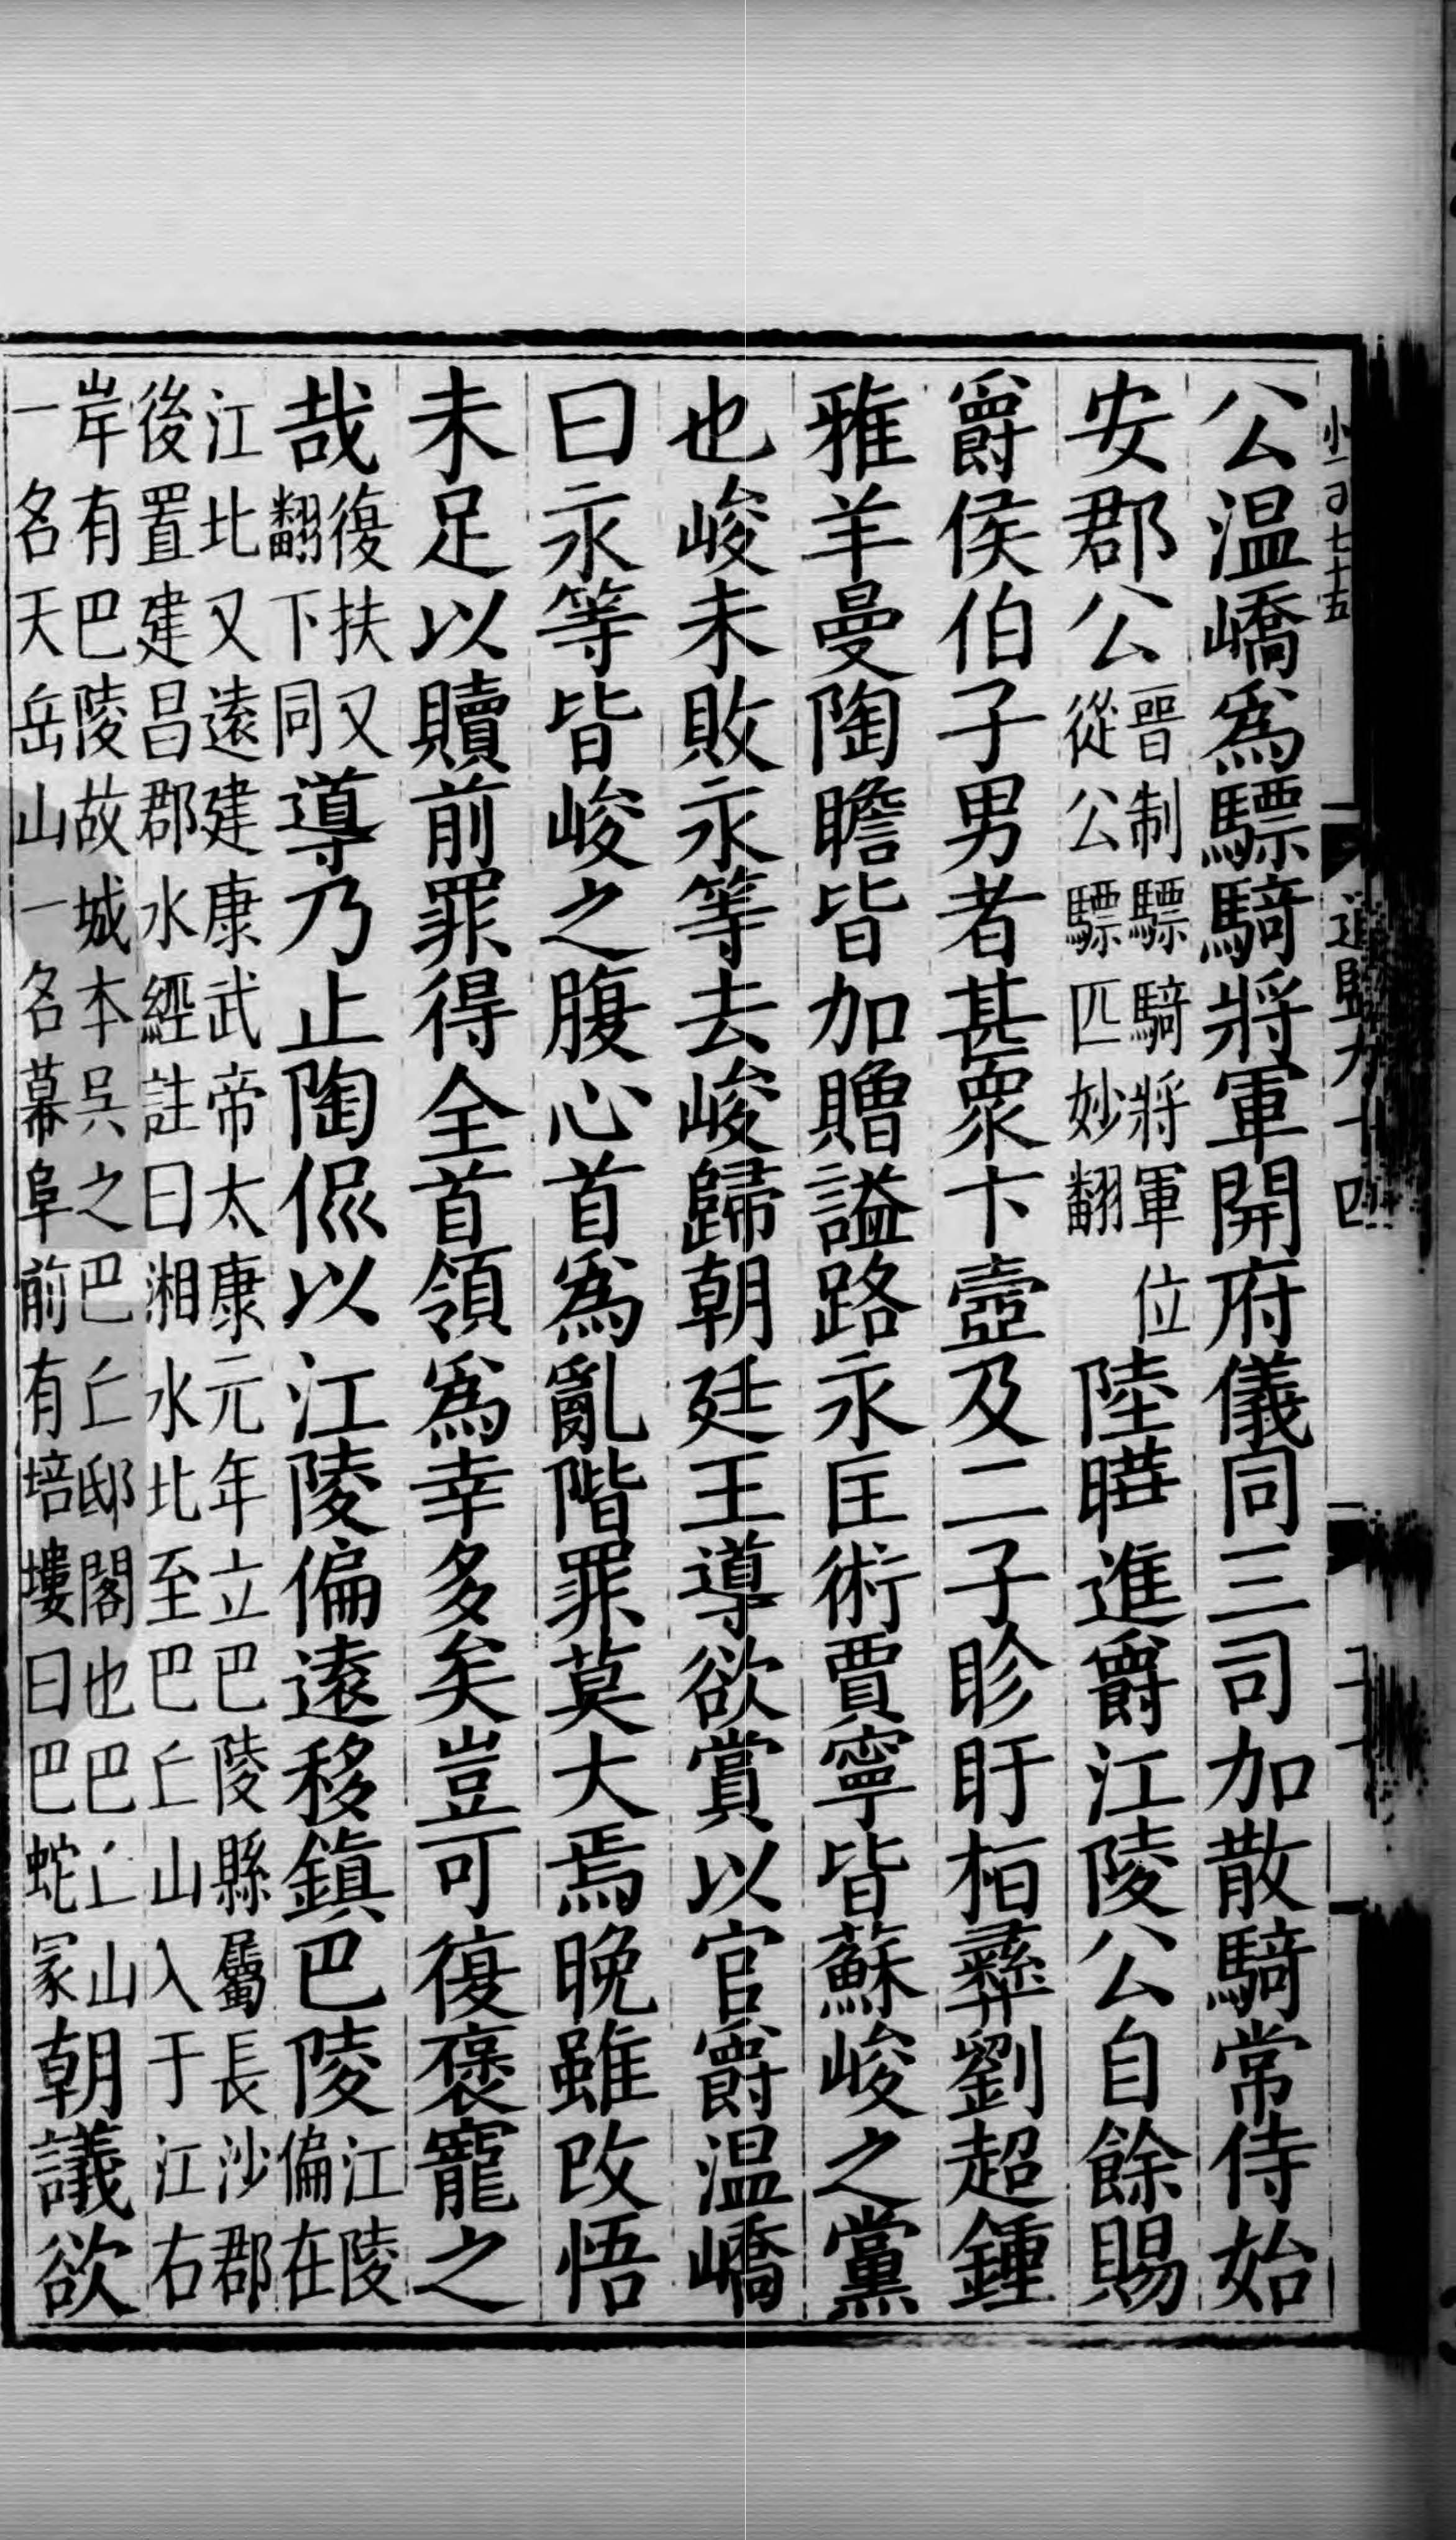 公温嶠爲驃騎將軍開府儀同三司加散騎常侍始
安郡公晉制驃騎將軍位從公驃匹妙翻陸曄進爵江陵公自餘賜
爵侯伯子男者甚衆卞壼及二子眕盱桓彝劉超鍾
雅羊曼陶瞻皆加贈謚路永匡術賈寧皆蘇峻之黨
也峻未敗永等去峻歸朝廷王導欲賞以官爵温嶠
曰永等皆峻之腹心首爲亂階罪莫大焉晚雖改悟
未足以贖前罪得全首領爲幸多矣豈可復褒寵之
哉復扶又翻下同導乃止陶侃以江陵偏遠移鎮巴陵江陵偏在
江北又遠建康武帝太康元年立巴陵縣屬長沙郡後置建昌郡水經註曰湘水北至巴丘山入于江右
岸有巴陵故城本吳之巴丘邸閣也巴丘山一名天岳山一名幕阜前有培塿曰巴蛇冢朝議欲